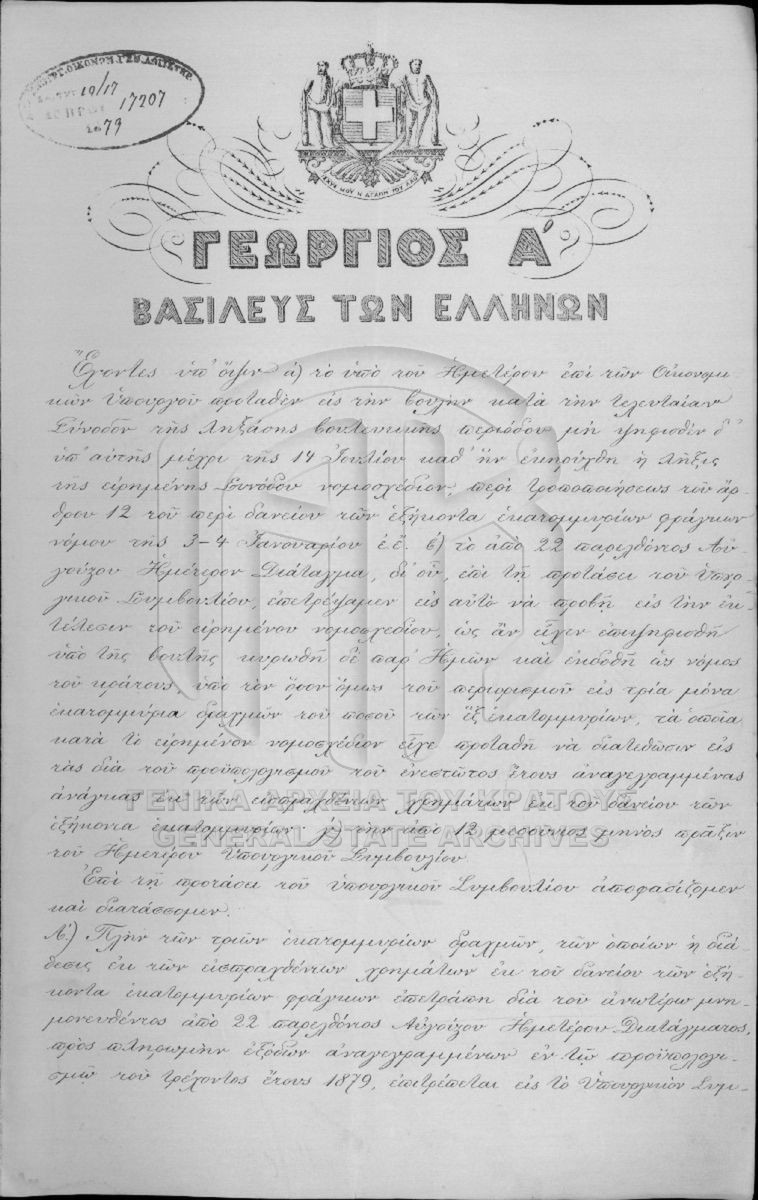 10/17
17207
1879
ΙΣΧΥΣ ΜΟΥ Η ΑΓΑΠΗ ΤΟΥ ΛΑΟΥ
ΓΕΩΡΓΙΟΣ Α'
ΒΑΣΙΛΕΥΣ ΤΩΝ ΕΛΛΗΝΩΝ
Ἔχοντες ὑπ' ὄψιν α) τὸ ὑπὸ τοῦ Ἡμετέρου ἐπὶ τῶν Οἰκονομι-
κῶν Ὑπουργοῦ προταθὲν εἰς τὴν βουλὴν κατὰ τὴν τελευταίαν
Σύνοδον τῆς ληξάσης βουλευτικῆς περιόδου μὴ ψηφισθὲν δ'
ὑπ' αὐτῆς μέχρι τῆς 14 Ἰουλίου καθ' ἣν ἐκηρύχθη ἡ λῆξις
τῆς εἰρημένης Συνόδου νομοσχέδιον, περὶ τροποποιήσεως τοῦ ἄρ-
θρου 12 τοῦ περὶ δανείου τῶν ἑξήκοντα ἑκατομμυρίων φράγκων
νόμου τῆς 3-4 Ἰανουαρίου ἐ.ἔ. β) τὸ ἀπὸ 22 παρελθόντος Αὐ-
γούστου Ἡμέτερον Διάταγμα, δι' οὗ, ἐπὶ τῇ προτάσει τοῦ Ὑπουρ-
γικοῦ Συμβουλίου, ἐπετρέψαμεν εἰς αὐτὸ νὰ προβῇ εἰς τὴν ἐκ-
τέλεσιν τοῦ εἰρημένου νομοσχεδίου, ὡς ἂν εἶχεν ἐπιψηφισθῆ
ὑπὸ τῆς βουλῆς κυρωθῆ δὲ παρ' Ἡμῶν καὶ ἐκδοθῆ ὡς νόμος
τοῦ κράτους, ὑπὸ τὸν ὅρον ὅμως τοῦ περιορισμοῦ εἰς τρία μόνα
ἑκατομμύρια δραχμῶν τοῦ ποσοῦ τῶν ἓξ ἑκατομμυρίων, τὰ ὁποῖα
κατὰ τὸ εἰρημένον νομοσχέδιον εἶχε προταθῆ νὰ διατεθῶσιν εἰς
τὰς διὰ τοῦ προϋπολογισμοῦ τοῦ ἐνεστῶτος ἔτους ἀναγεγραμμένας
ἀνάγκας ἐκ τῶν εἰσπραχθέντων χρημάτων ἐκ τοῦ δανείου τῶν
ἑξήκοντα ἑκατομμυρίων· γ) τὴν ἀπὸ 12 μεσοῦντος μηνὸς πρᾶξιν
τοῦ Ἡμετέρου Ὑπουργικοῦ Συμβουλίου.
Ἐπὶ τῇ προτάσει τοῦ ὑπουργικοῦ Συμβουλίου ἀποφασίζομεν
καὶ διατάσσομεν.
Α'.) Πλὴν τῶν τριῶν ἑκατομμυρίων δραχμῶν, τῶν ὁποίων ἡ διά-
θεσις ἐκ τῶν εἰσπραχθέντων χρημάτων ἐκ τοῦ δανείου τῶν ἑξή-
κοντα ἑκατομμυρίων φράγκων ἐπετράπη διὰ τοῦ ἀνωτέρω μνη-
μονευθέντος ἀπὸ 22 παρελθόντος Αὐγούστου Ἡμετέρου Διατάγματος,
πρὸς πληρωμὴν ἐξόδων ἀναγεγραμμένων ἐν τῷ προϋπολογι-
σμῷ τοῦ τρέχοντος ἔτους 1879, ἐπιτρέπεται εἰς τὸ Ὑπουργικὸν Συμ-
ΓΕΝΙΚΑ ΑΡΧΕΙΑ ΤΟΥ ΚΡΑΤΟΥΣ
GENERAL STATE ARCHIVES